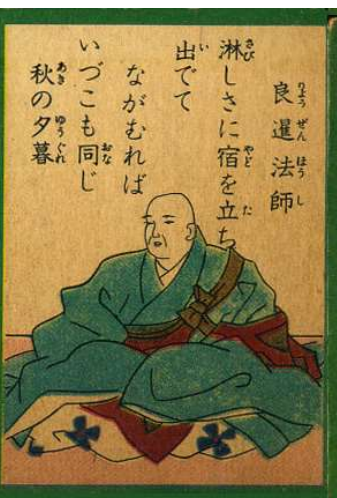 良暹法師
淋しさに宿を立ち
出でて
ながむれば
いづこも同じ
秋の夕暮